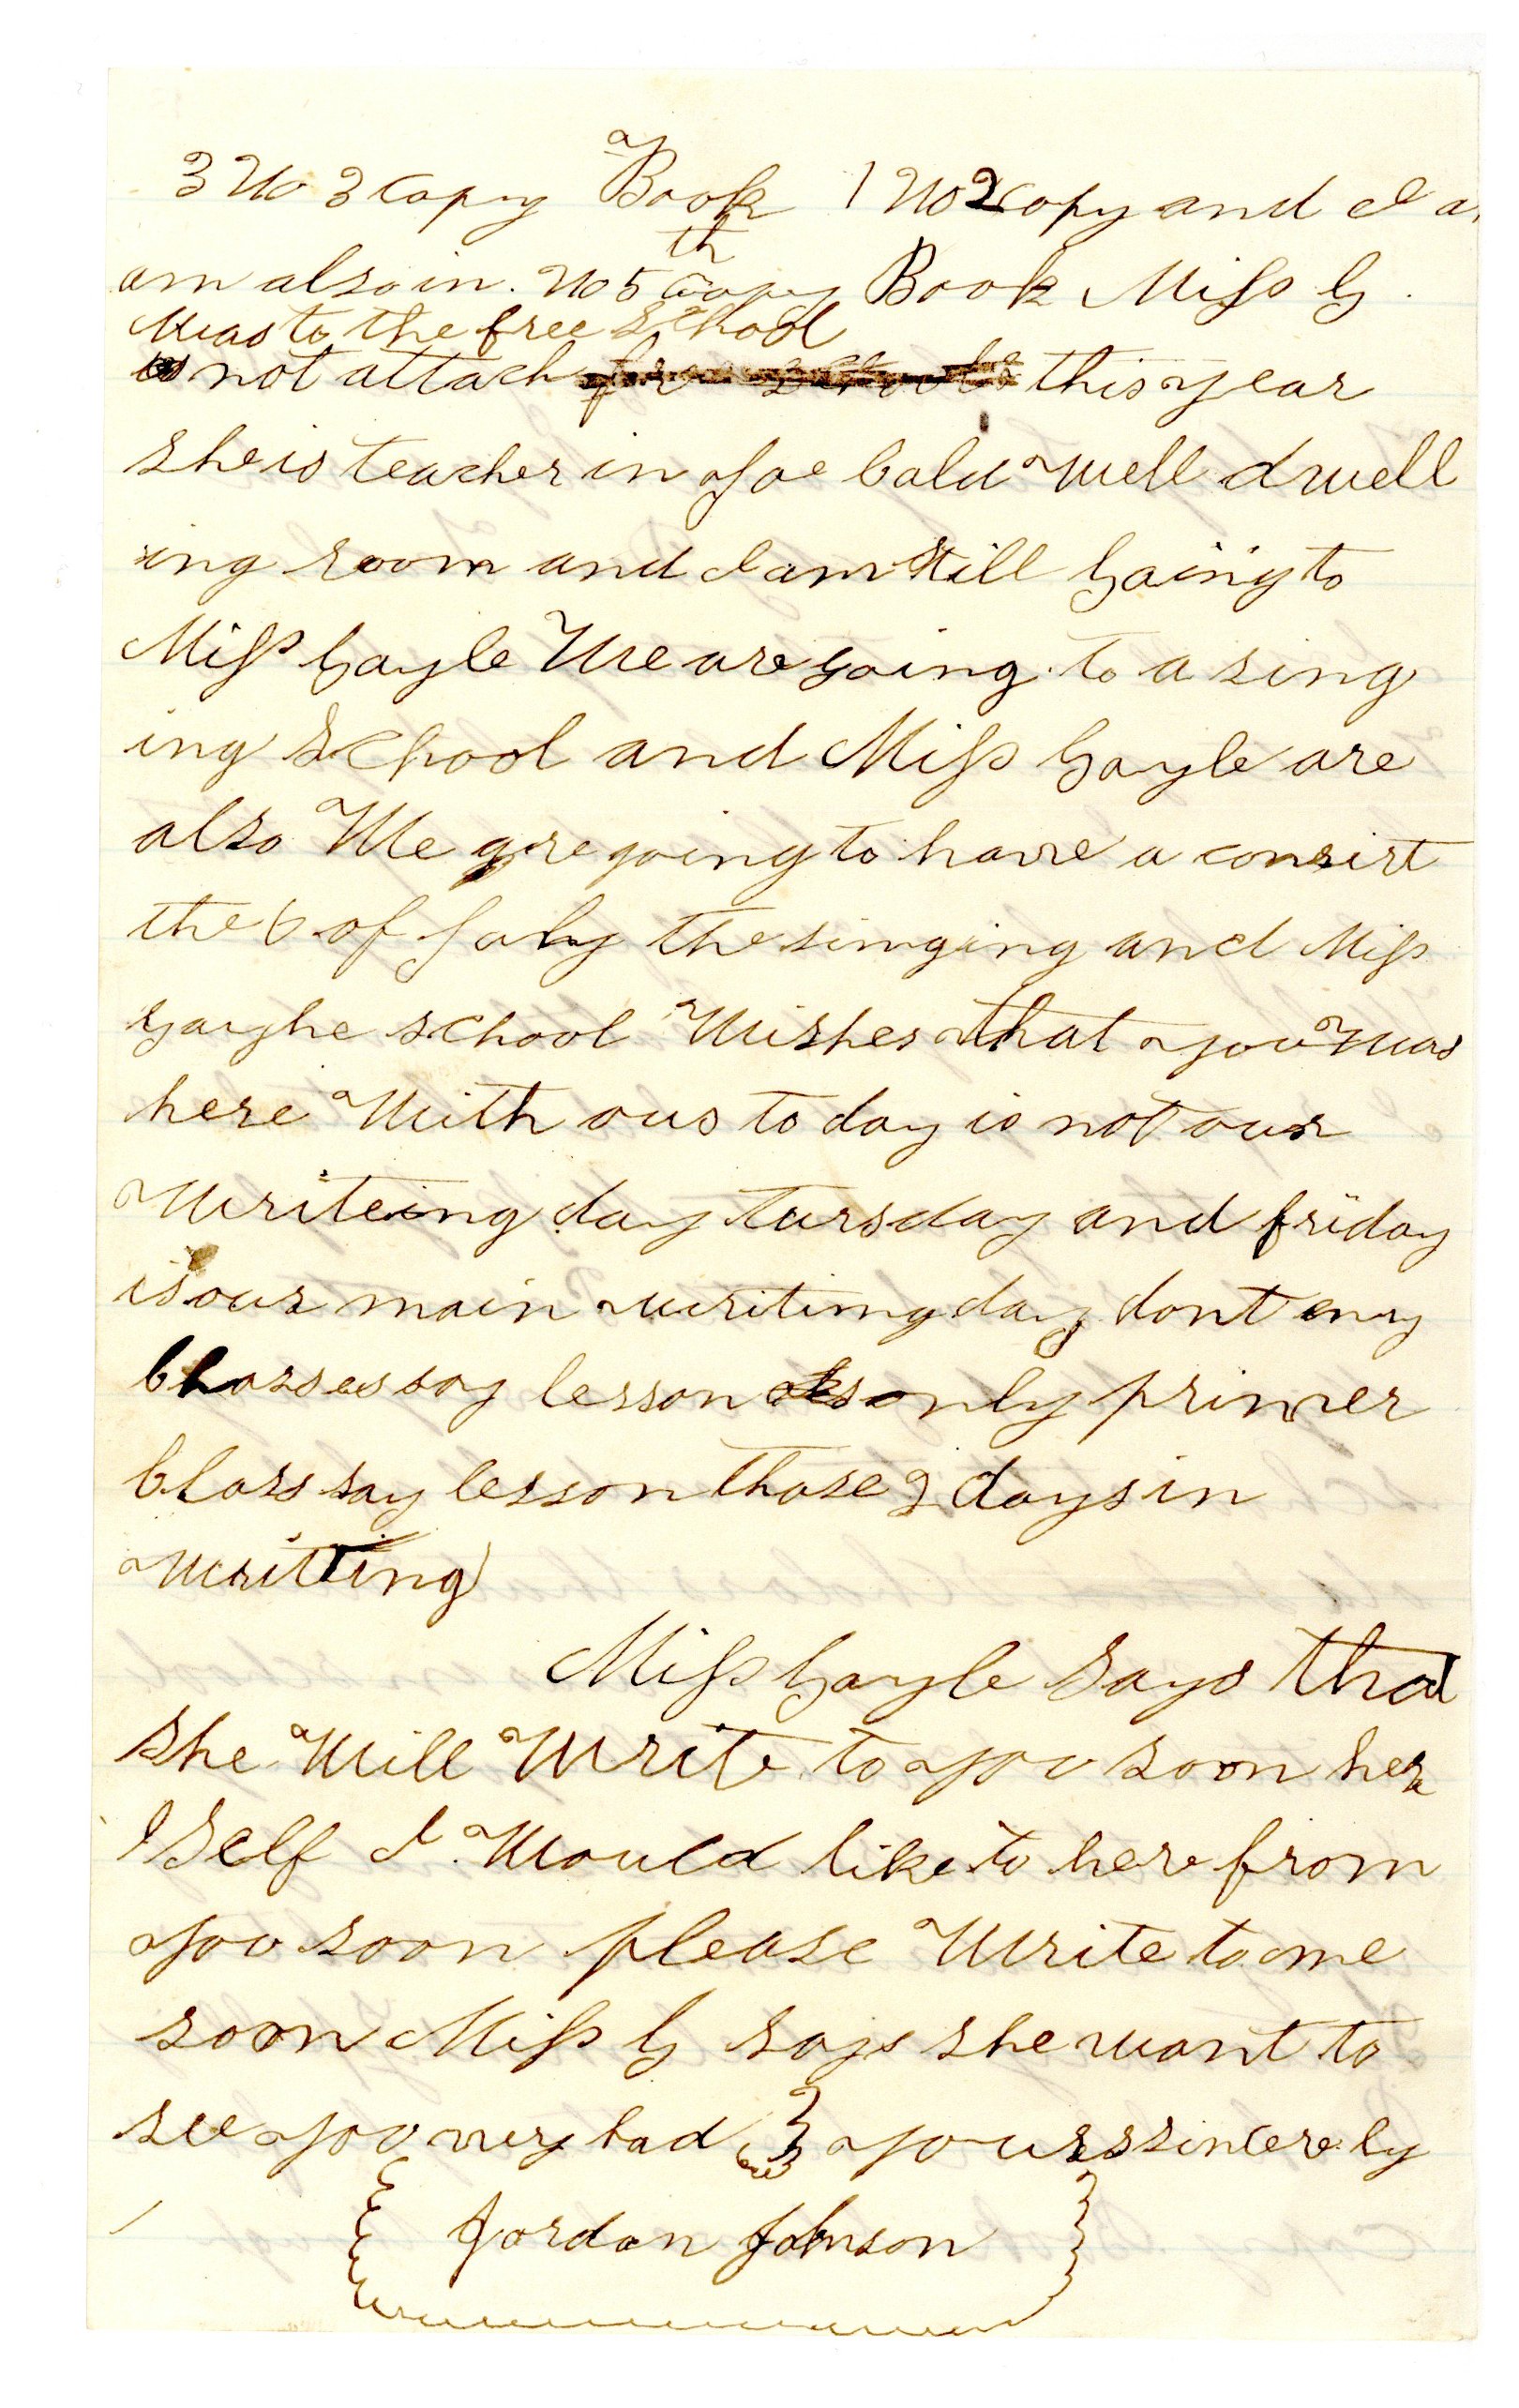 3 No 3 Copy Book 1 No 2 Copy and I a
am also in. No 5th Copy Book Miss G.
was to the free School
is not attach free schools this year
she is teacher in Joe Caldwell dwell
ing room and I am still Going to
Miss Gayle We are going to a sing
ing School and Miss Gayle are
also We are going to have a consirt
the 6 of July the singing and Miss
Gayhe school Wishes that you was
here With ous to day is not our
Writeing day tursday and friday
is our main writing day dont eny
Classes say lesson only primer
Class say lesson those 2 days in
Writting
Miss Gayle Says that
She Will Write to you soon her
Self I Would like to here from
you soon please Write to me
soon Miss G says she want to
see you very bad yours sincerely
Jordan Johnson